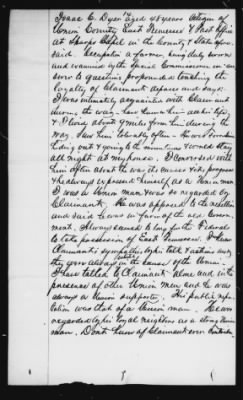 Isaac C. Dyer aged 48 years citizen of
Union County East Tennessee & Post Office
at Sharps Chapel in the County & State afore
said. Occupation a farmer, being duly sworn
and examined by the Special Commissioner in an
swer to questions propounded touching the
loyalty of Claimant deposes and says:
I was intimately acquainted with Claimant
during the war. have known him
& I lived about 9 miles from him during the
war. Saw him tolerably often - He was
hiding out & going to the mountains & would stay
all night at my house. I conversed with
him often about the war its causes & its progress
& he always expressed himself as a Union man
I was a Union man & was so regarded by
Claimant. He was opposed to the rebellion
and said he was in favor of the old Govern-
ment. Always seemed long for the Federals
to take possession of East Tennessee. I know
Claimants sympathies by his talk & actions
they were always in the cause of the Union.
I have talked to Claimant alone and in the
presence of other Union men and he was
always a Union supporter. His public repu-
tation was that of a Union man. He was
regarded by his loyal neighbors as a strong Union
man. Dont know of Claimant ever